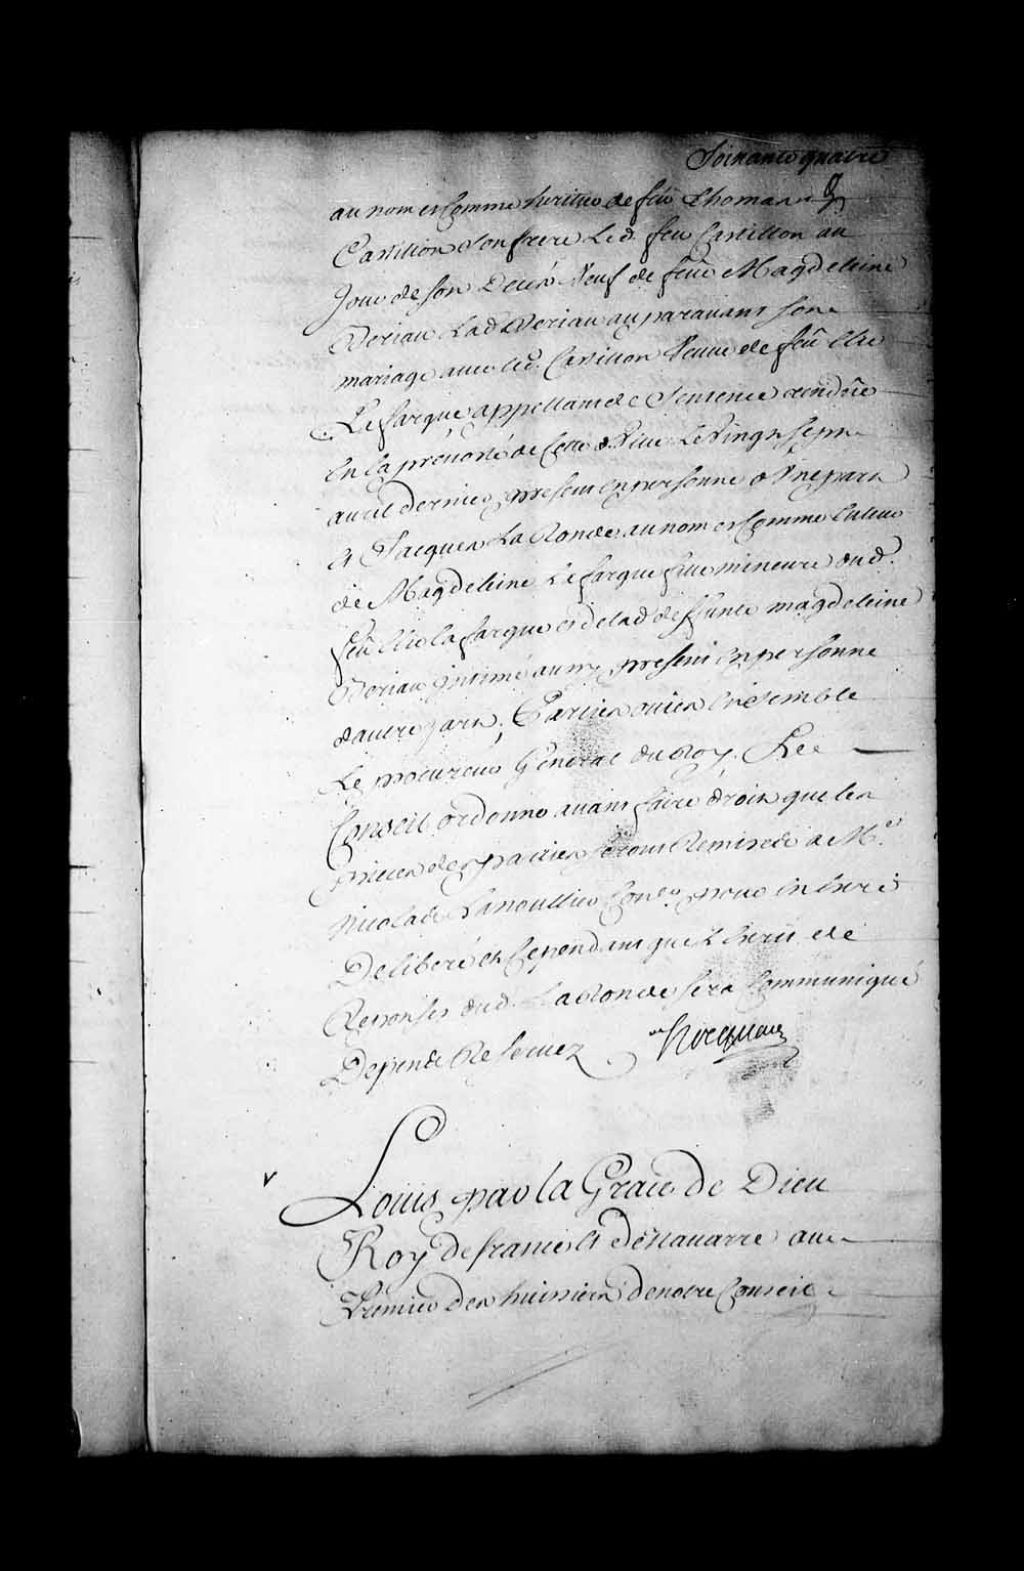 Soixante quatre
au nom et Comme heritier de feu Thomas
Castillon son frere Led. feu Castillon au
Jour de son Deces Veuf de feue Magdeleine
Doriau Lad. Doriau auparavant son
mariage avec led. Castillon Veuve de feu Elie
Lefargue appellant de Sentence rendüe
en la prévosté de Cette Ville Le Vingt sept
avril dernier, present en personne d'Une part
Et Jacques La Ronde au nom et Comme tuteur
de Magdeleine Lefargue fille mineure dud.
feu Elie lafargue et de lad. deffunte magdeleine
Doriau intimé aussy present en personne
d'autre part; Parties ouïes Ensemble
Le procureur General du Roy. Le
Conseil ordonne avant faire droit que les
pieces des parties seront Remises à Me.
Nicolas Lanoullier Coner. pour en être
Deliberé et Cependant que l'Ecrit de
Reponses dud. La Ronde sera Communiqué
Depens Reservez
Louis par la Grace de Dieu
Roy de france et de Navarre au
Premier des huissiers de notre Conseil